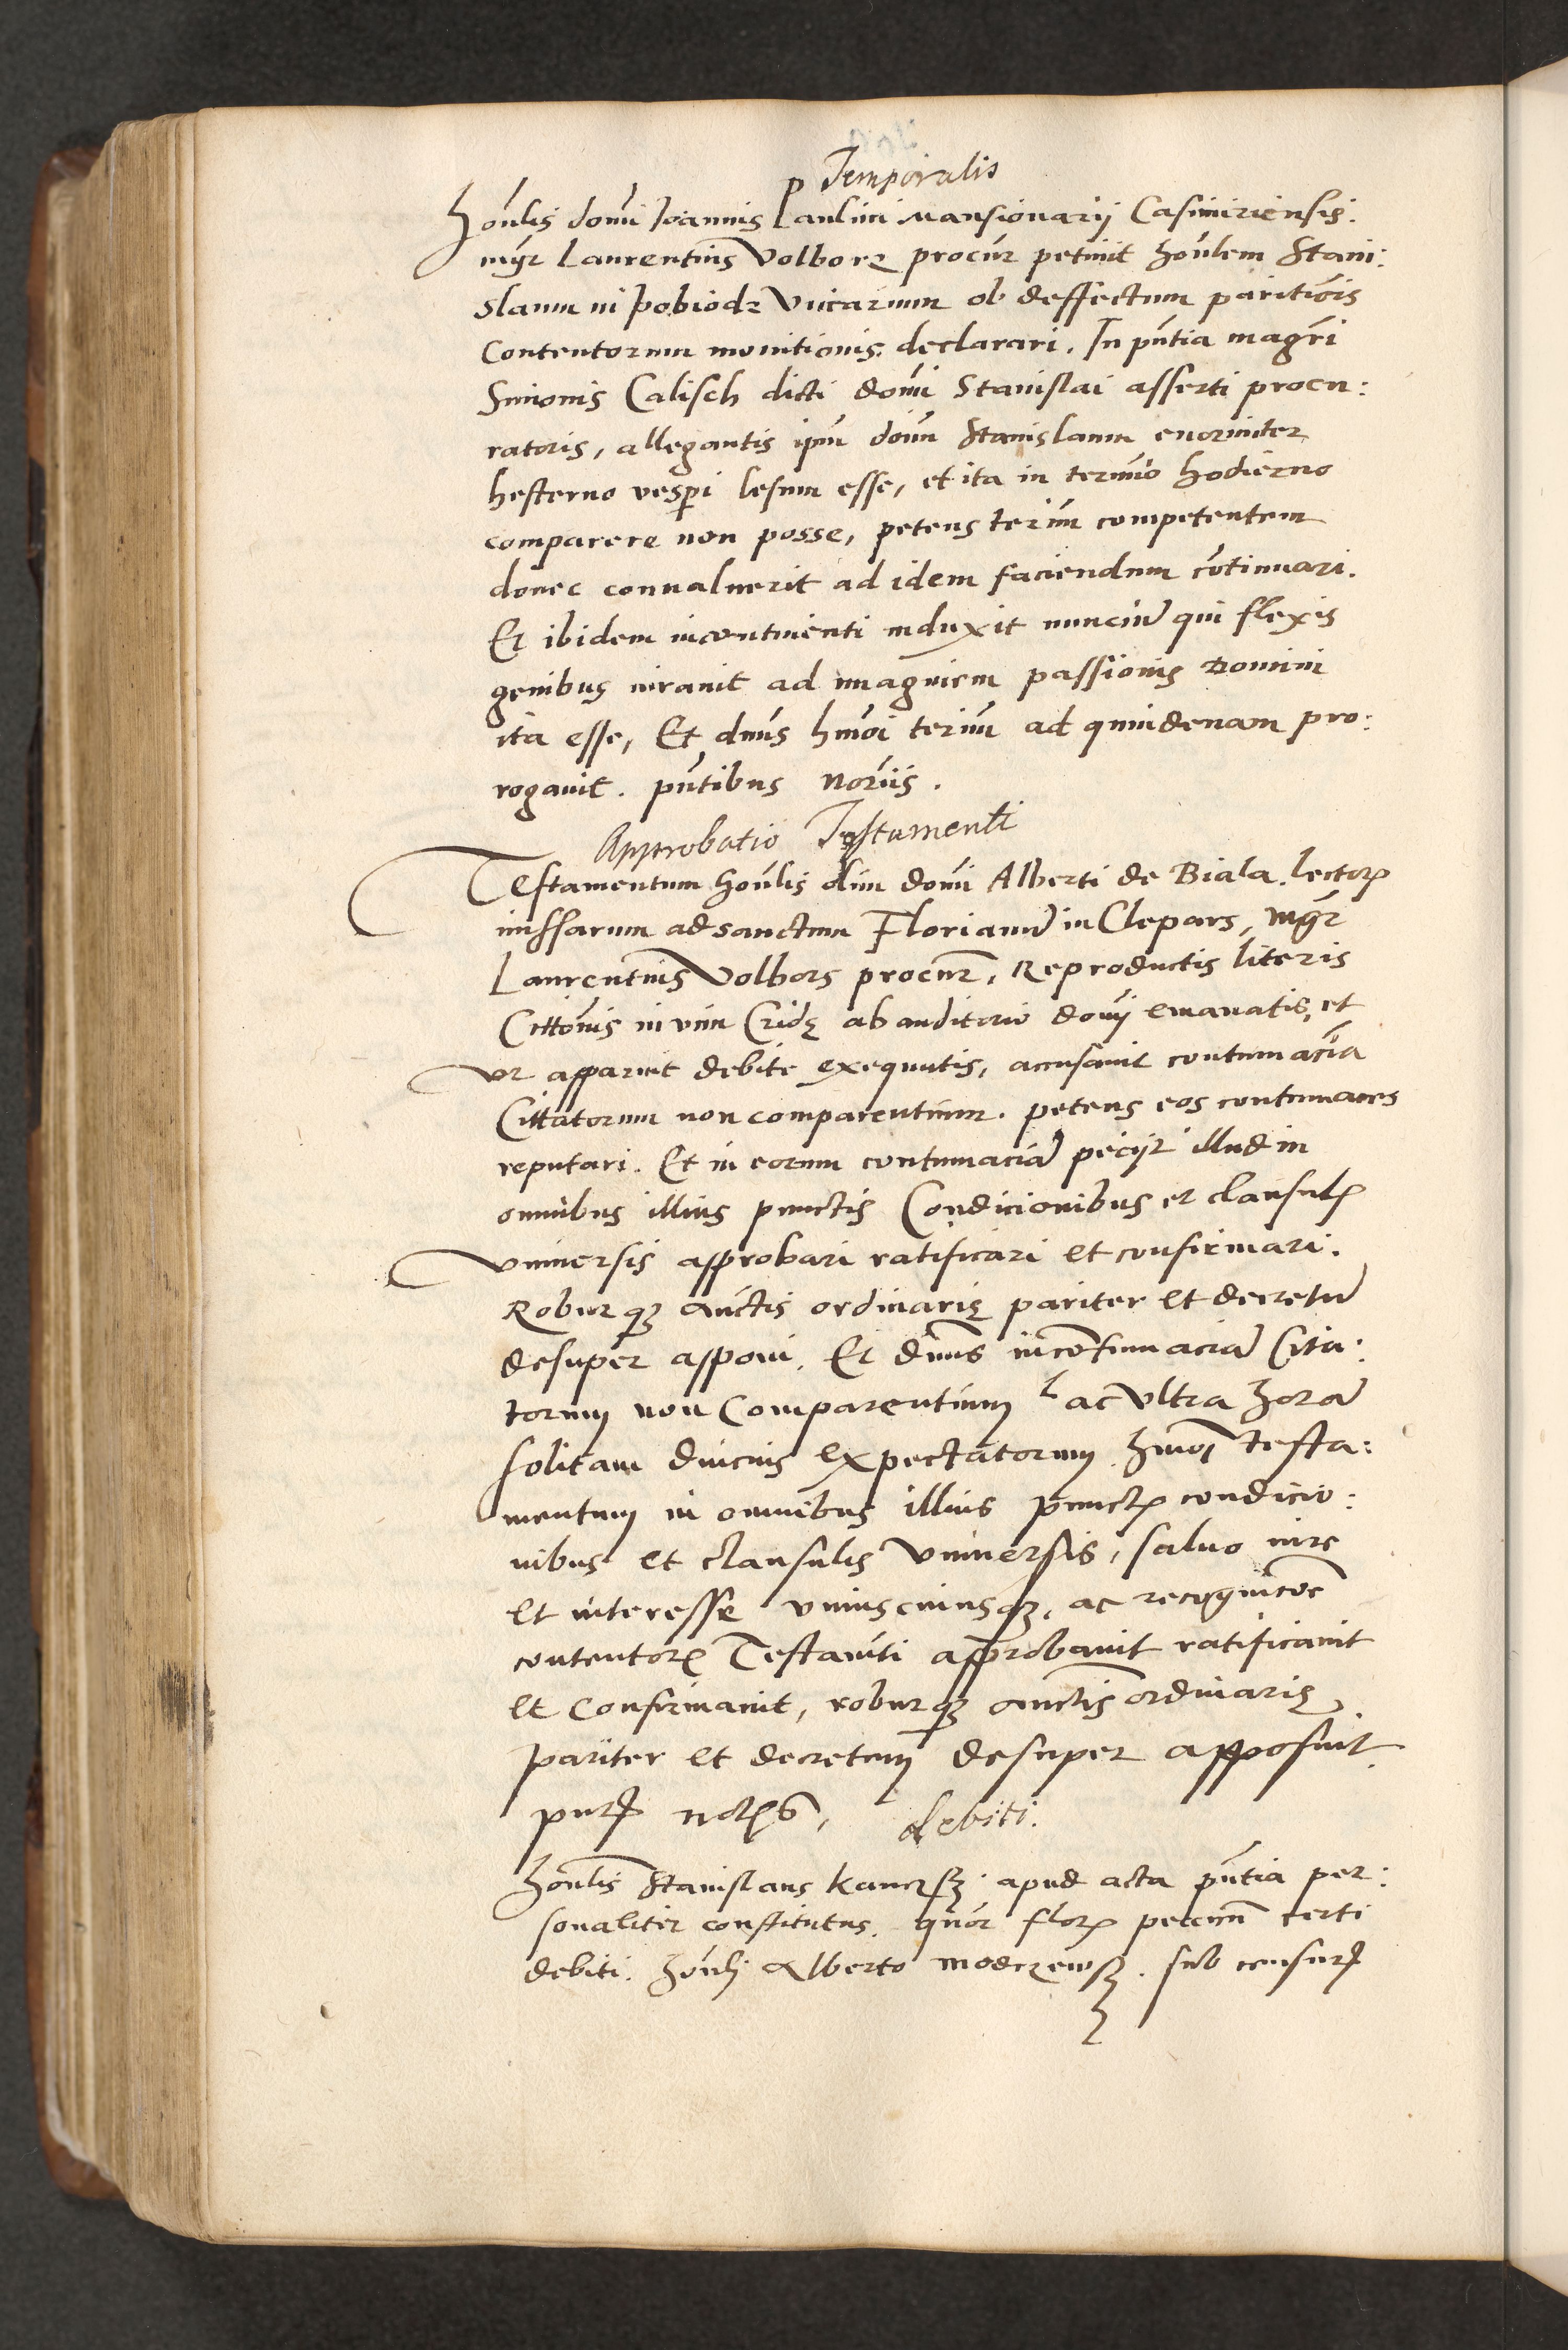 Temporalis
Honlis domi Ioannis Paulini Mansionarij Casimiriensis.
mgr Laurentius Volborz procur petiuit honlem Stani:
slaum in pobiodr Vicarium ob deffectum paritiois
contentorum monitionis declarari. In pntia magri
Simonis Calisch dicti domi Stanislai asserti procu:
ratoris, allegantis ipm dom Stanislaum enormiter
hesterno vesperi lesum esse, et ita in termio hodierno
comparere non posse, petens terim competentem
donec conualuerit ad idem faciendum cotinuari.
Et ibidem incontinenti induxit nunciu qui flexis
genibus iurauit ad imaginem passionis Domini
ita esse, Et dnus hmoi terim ad quindenam pro:
rogauit. pntibus noriis.
Approbatio Testamenti
Testamentum honlis olim domi Alberti de Biala. lector
missarum ad sanctum Florianu in Clepars, mgr
Laurentius Volbors procur, Reproductis literis
Cittonis in vim Cridę ab auditorio domj emanatis, et
vt apparuit debite exequutis, accusauit contumacia
Cittatorum non comparentium. petens eos contumaces
reputari. Et in eorum contumacia pecijt illud in
omnibus illius punctis Condicionibus et clausul
vniuersis approbari ratificari et confirmari.
Roburqz auctis ordinarię pariter et decretu
desuper apponi. Et dnus in contumacia Cita:
torum non Comparentium ac vltra hora
solitam diucius expectatorum hmoi testa:
mentum in omnibus illius punct condicio:
nibus et clausulis vniuersis, saluo iure
et interesse vniuscuiusqz, ac recognicoe
contentor Testamti approbauit ratificauit
et Confirmauit, roburqz auctis ordinarię
pariter et decretum desuper apposuit.
debiti.
Honlis Stanislaus apud acta pntia per:
sonaliter constitutus. quor flor peccun certi
debiti. honlj Alberto modrzews. sub censur